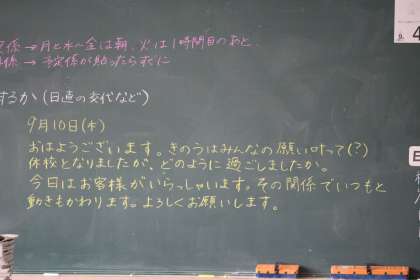 係→月と水〜金は朝、火は1時間目のあと
係→予定係が貼ったらすぐに
するか(日直の交代など)
9月10日(木)
おはようございます。きのうはみんなの願い叶って(?)
休校となりましたが、どのように過ごしましたか。
今日はお客様がいらっしゃいます。その関係でいつもと
動きもかわります。よろしくお願いします。
4